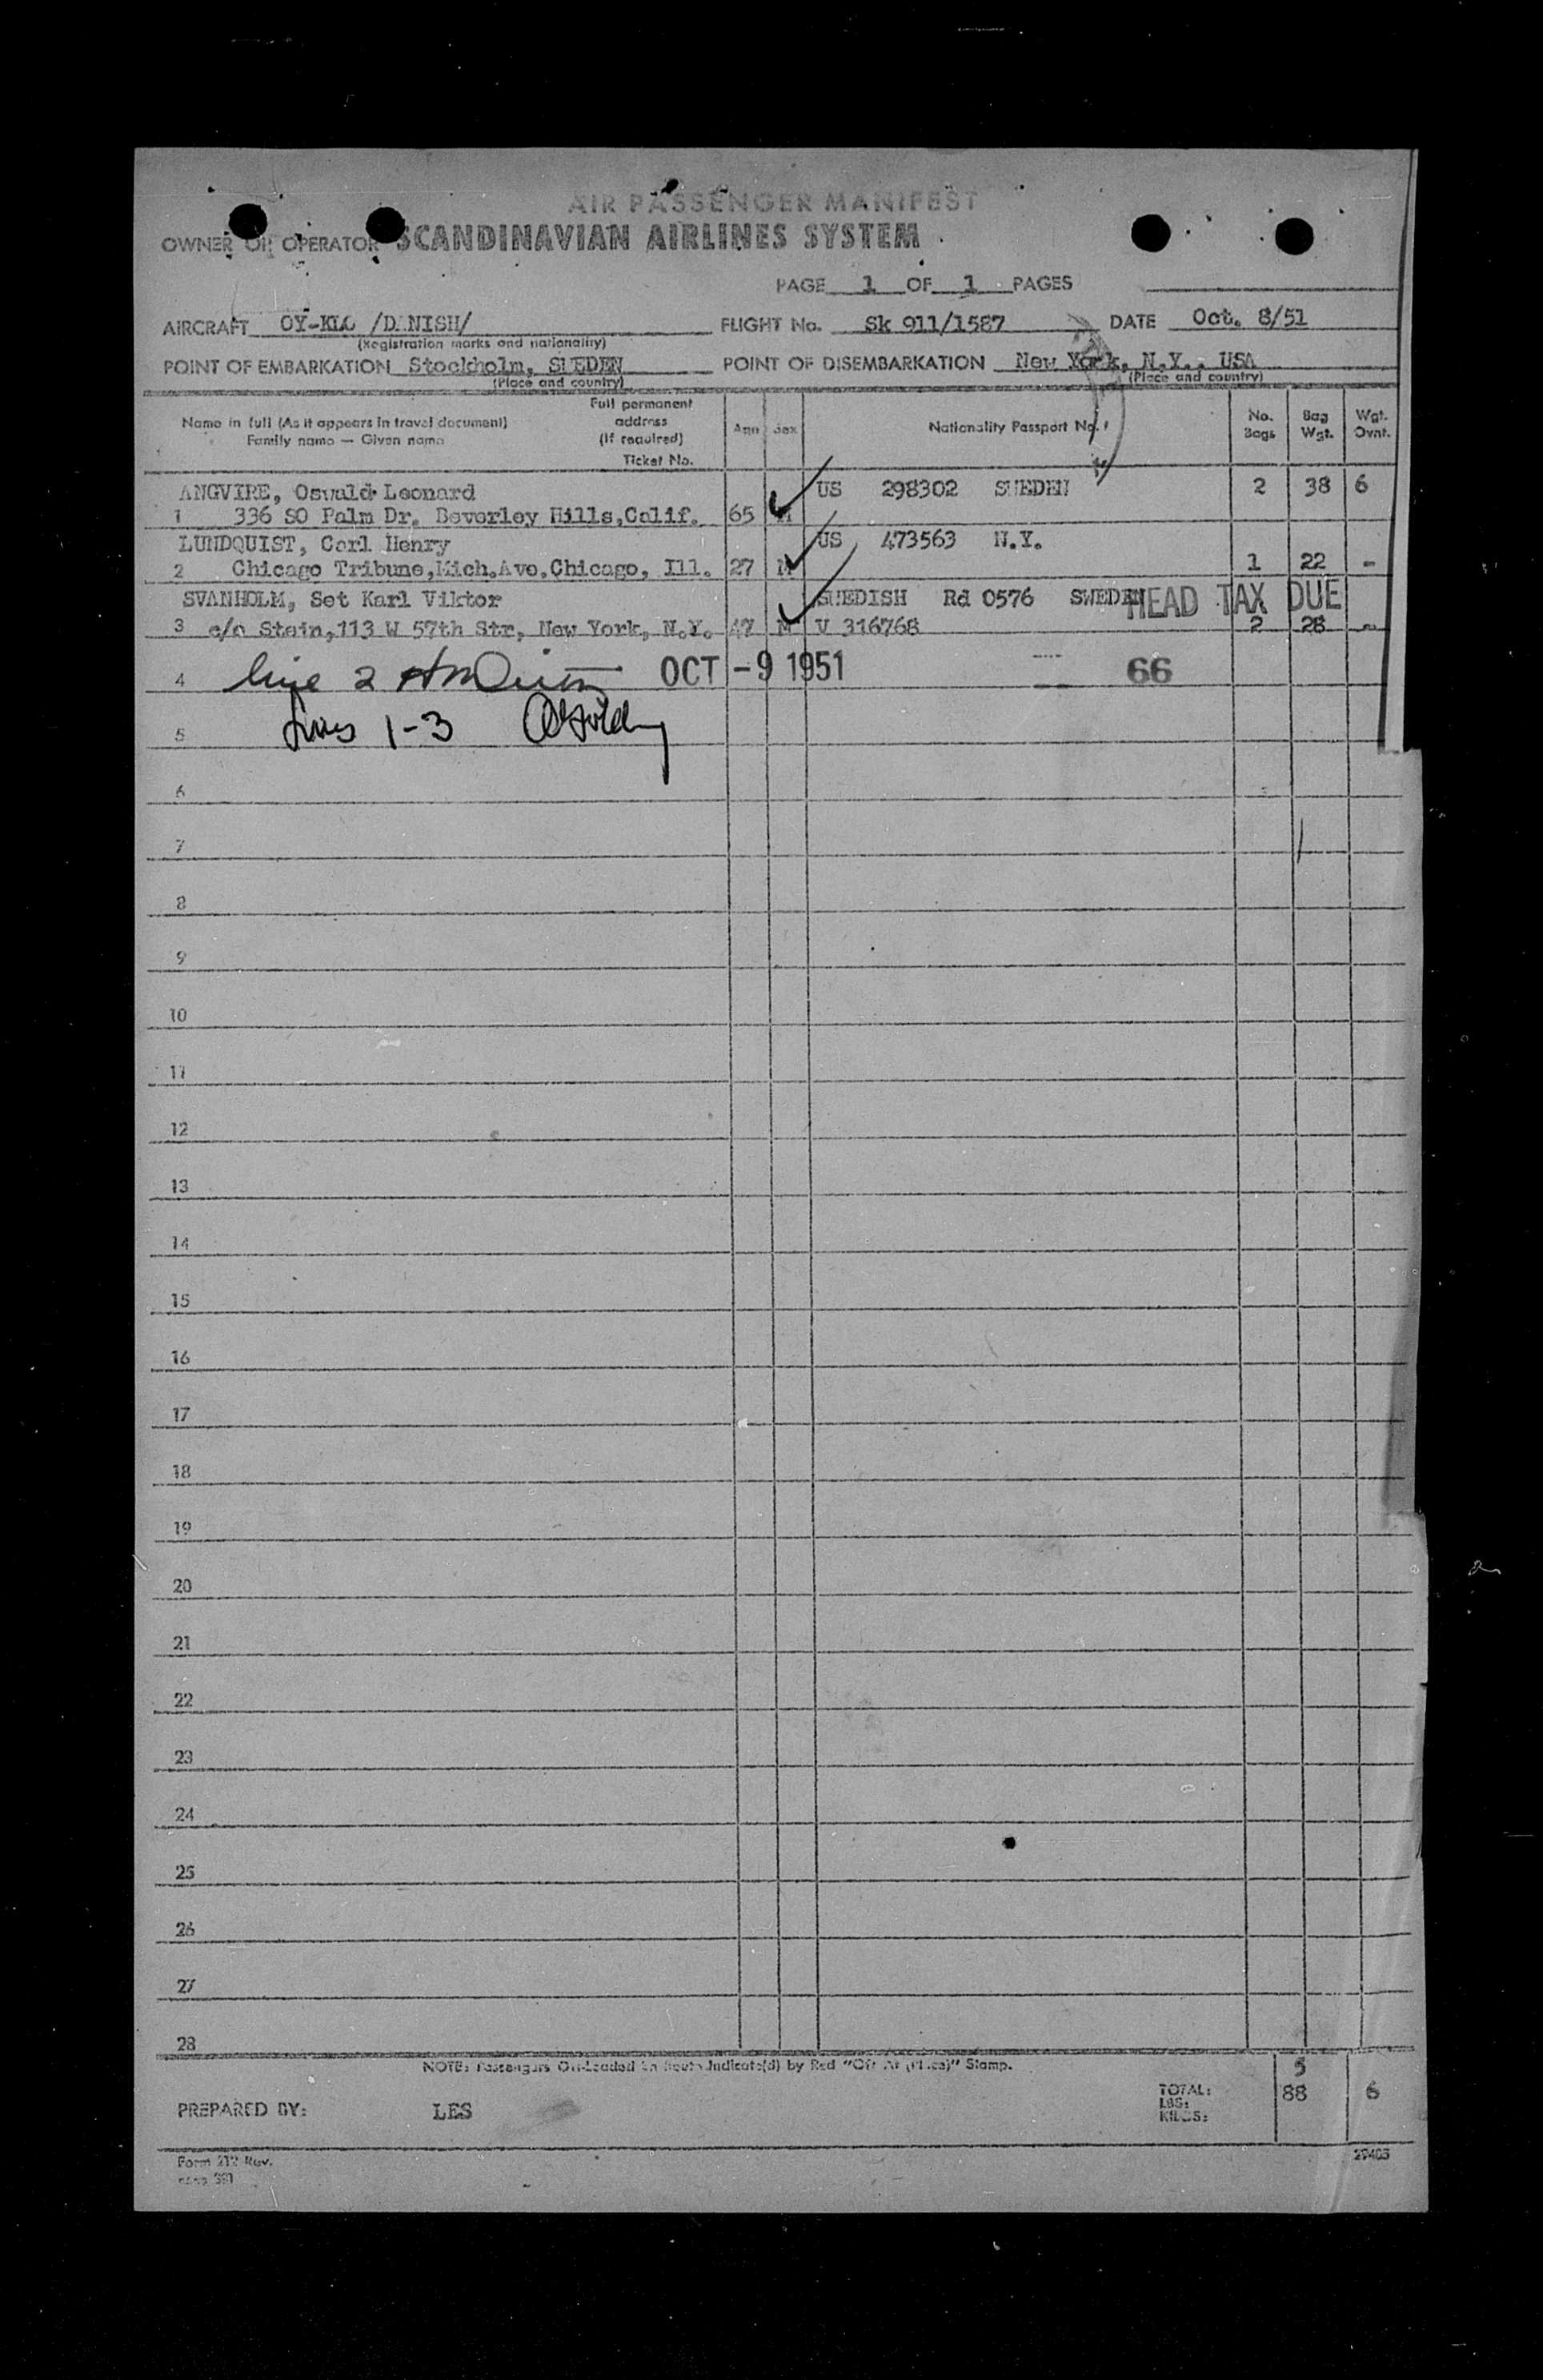 AIR PASSENGER MANIFEST
OWNER OR OPERATOR SCANDINAVIAN AIRLINES SYSTEM
PAGE 1 OF 1 PAGES
AIRCRAFT OY-KLO /DANISH/ FLIGHT No. Sk 911/1587 DATE Oct. 8/51
(Registration marks and nationality)
POINT OF EMBARKATION Stockholm, SWEDEN POINT OF DISEMBARKATION New York, N.Y., USA
(Place and country) (Place and country)
Name in full (As it appears in travel document) Family name — Given name Full permanent address (If required) Ticket No. Age Sex Nationality Passport No. No. Bags Bag Wgt. Wgt. Ovnt.
ANGVIRE, Oswald Leonard US 298302 SWEDEN 2 38 6
1 336 SO Palm Dr. Beverley Hills,Calif. 65 M
LUNDQUIST, Carl Henry US 473563 N.Y.
2 Chicago Tribune,Mich.Ave,Chicago, Ill. 27 M 1 22 -
SVANHOLM, Set Karl Viktor SWEDISH Rd 0576 SWEDEN HEAD TAX DUE
3 c/o Stein,113 W 57th Str, New York, N.Y. 47 M V 316768 2 28 -
4 line 2 OCT -9 1951 66
5 Lines 1-3
6
7
8
9
10
11
12
13
14
15
16
17
18
19
20
21
22
23
24
25
26
27
28
NOTE: Passengers Off-Loaded En Route Indicate(d) by Red "Off At (Place)" Stamp.
5
PREPARED BY: LES TOTAL: LBS: KILOS: 88 6
Form 212 Rev.
29405